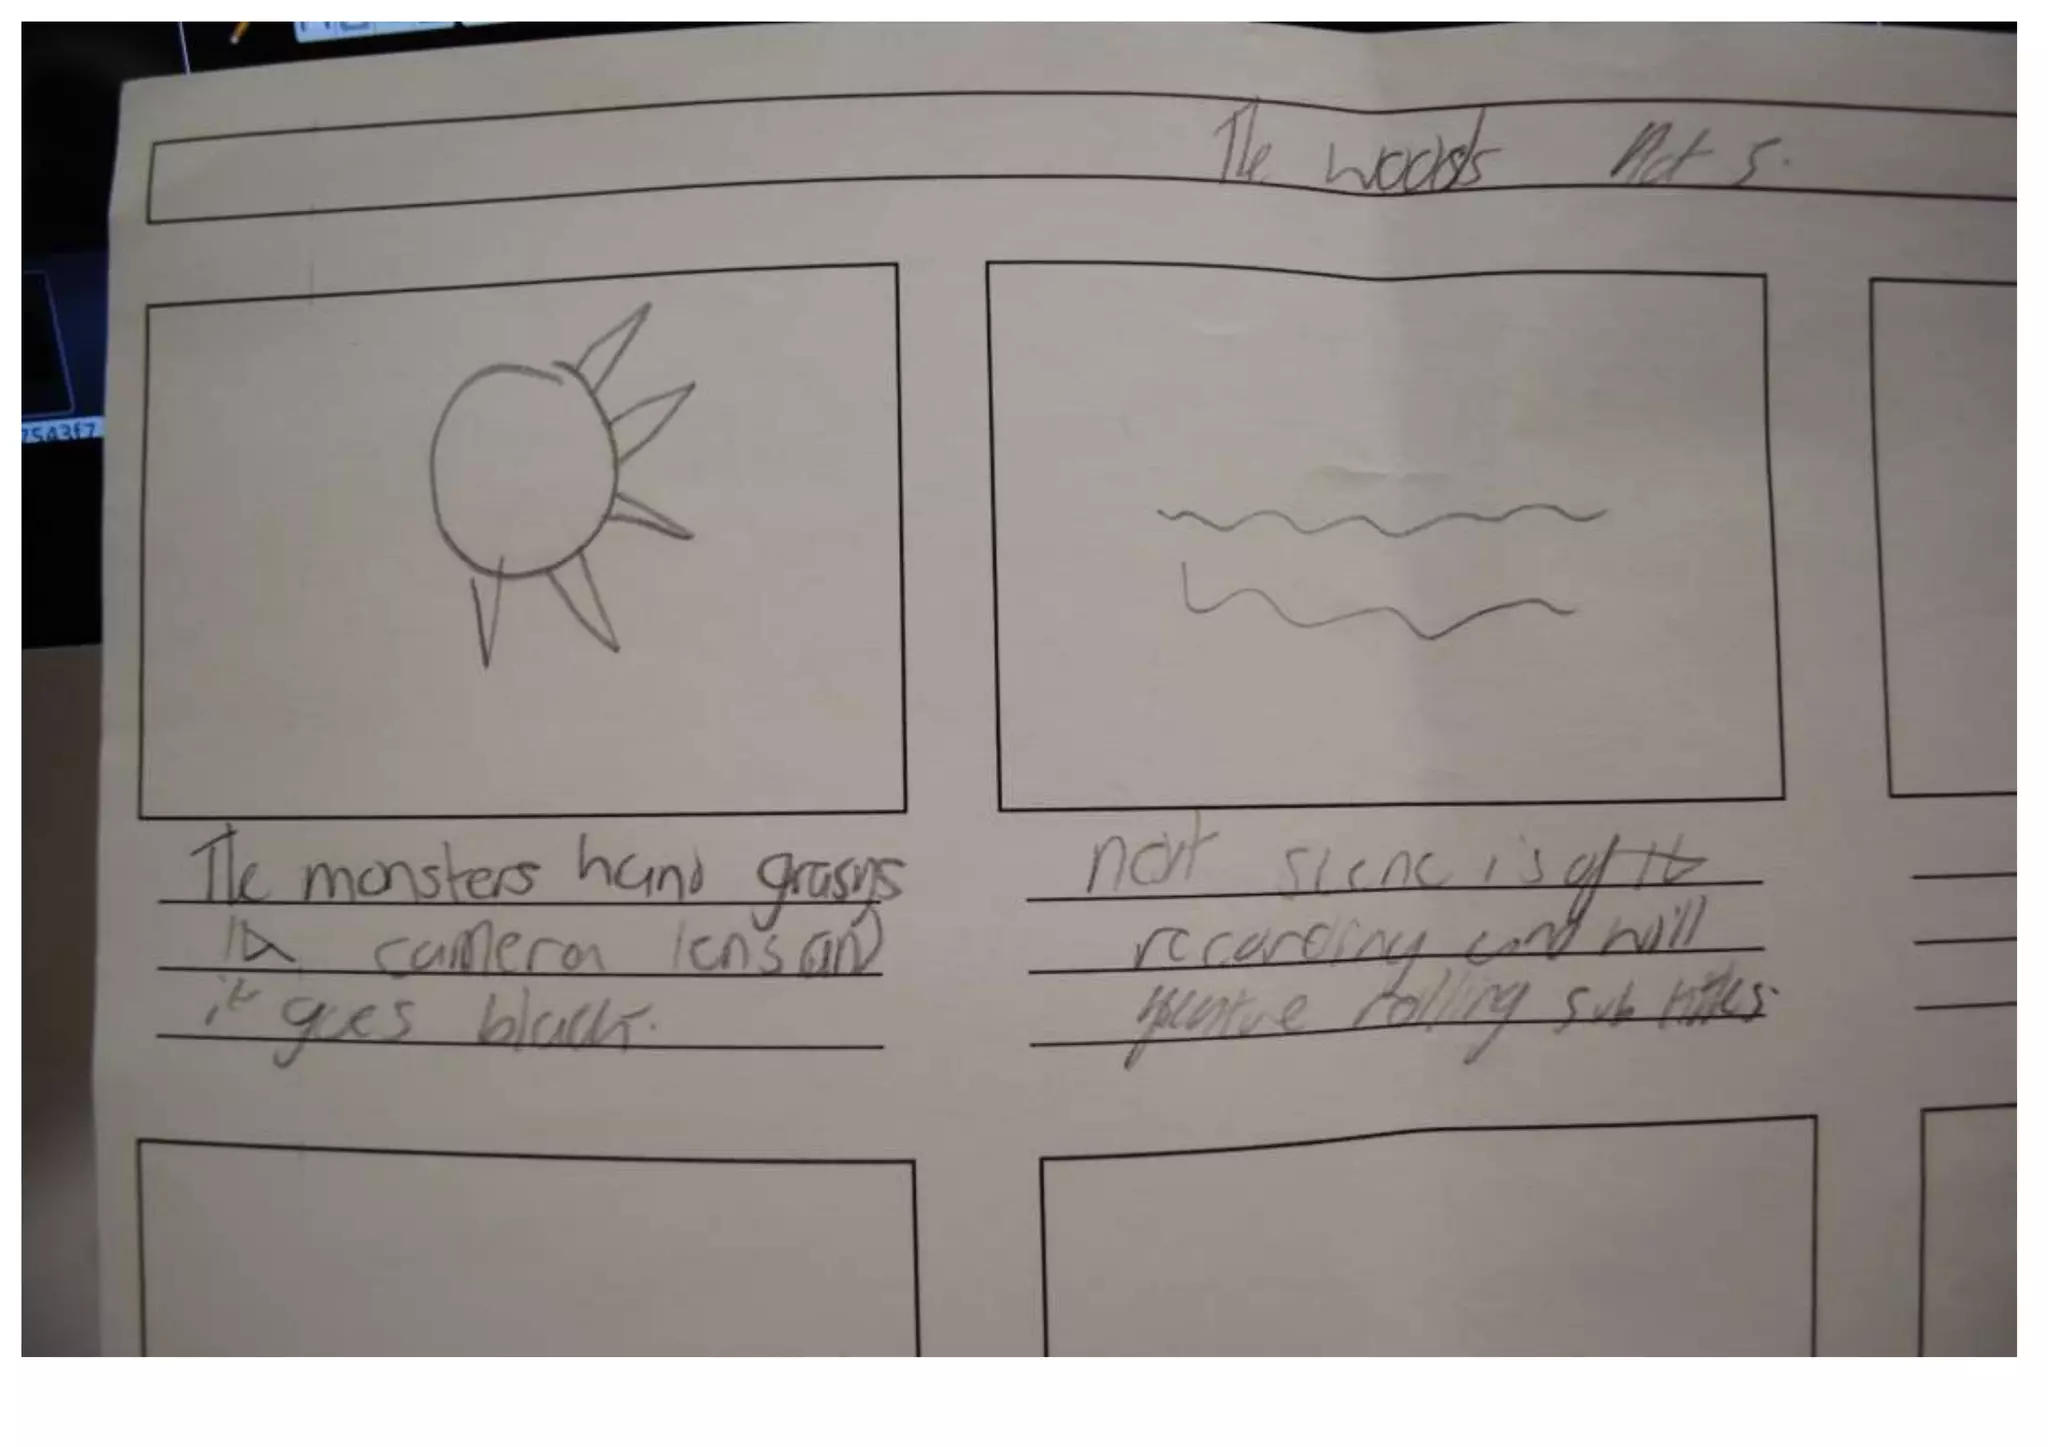 The woods Act 5.
The monsters hand grasps
the camera lens and
it goes black.
next scene is of the
recording and will
feature rolling sub titles.